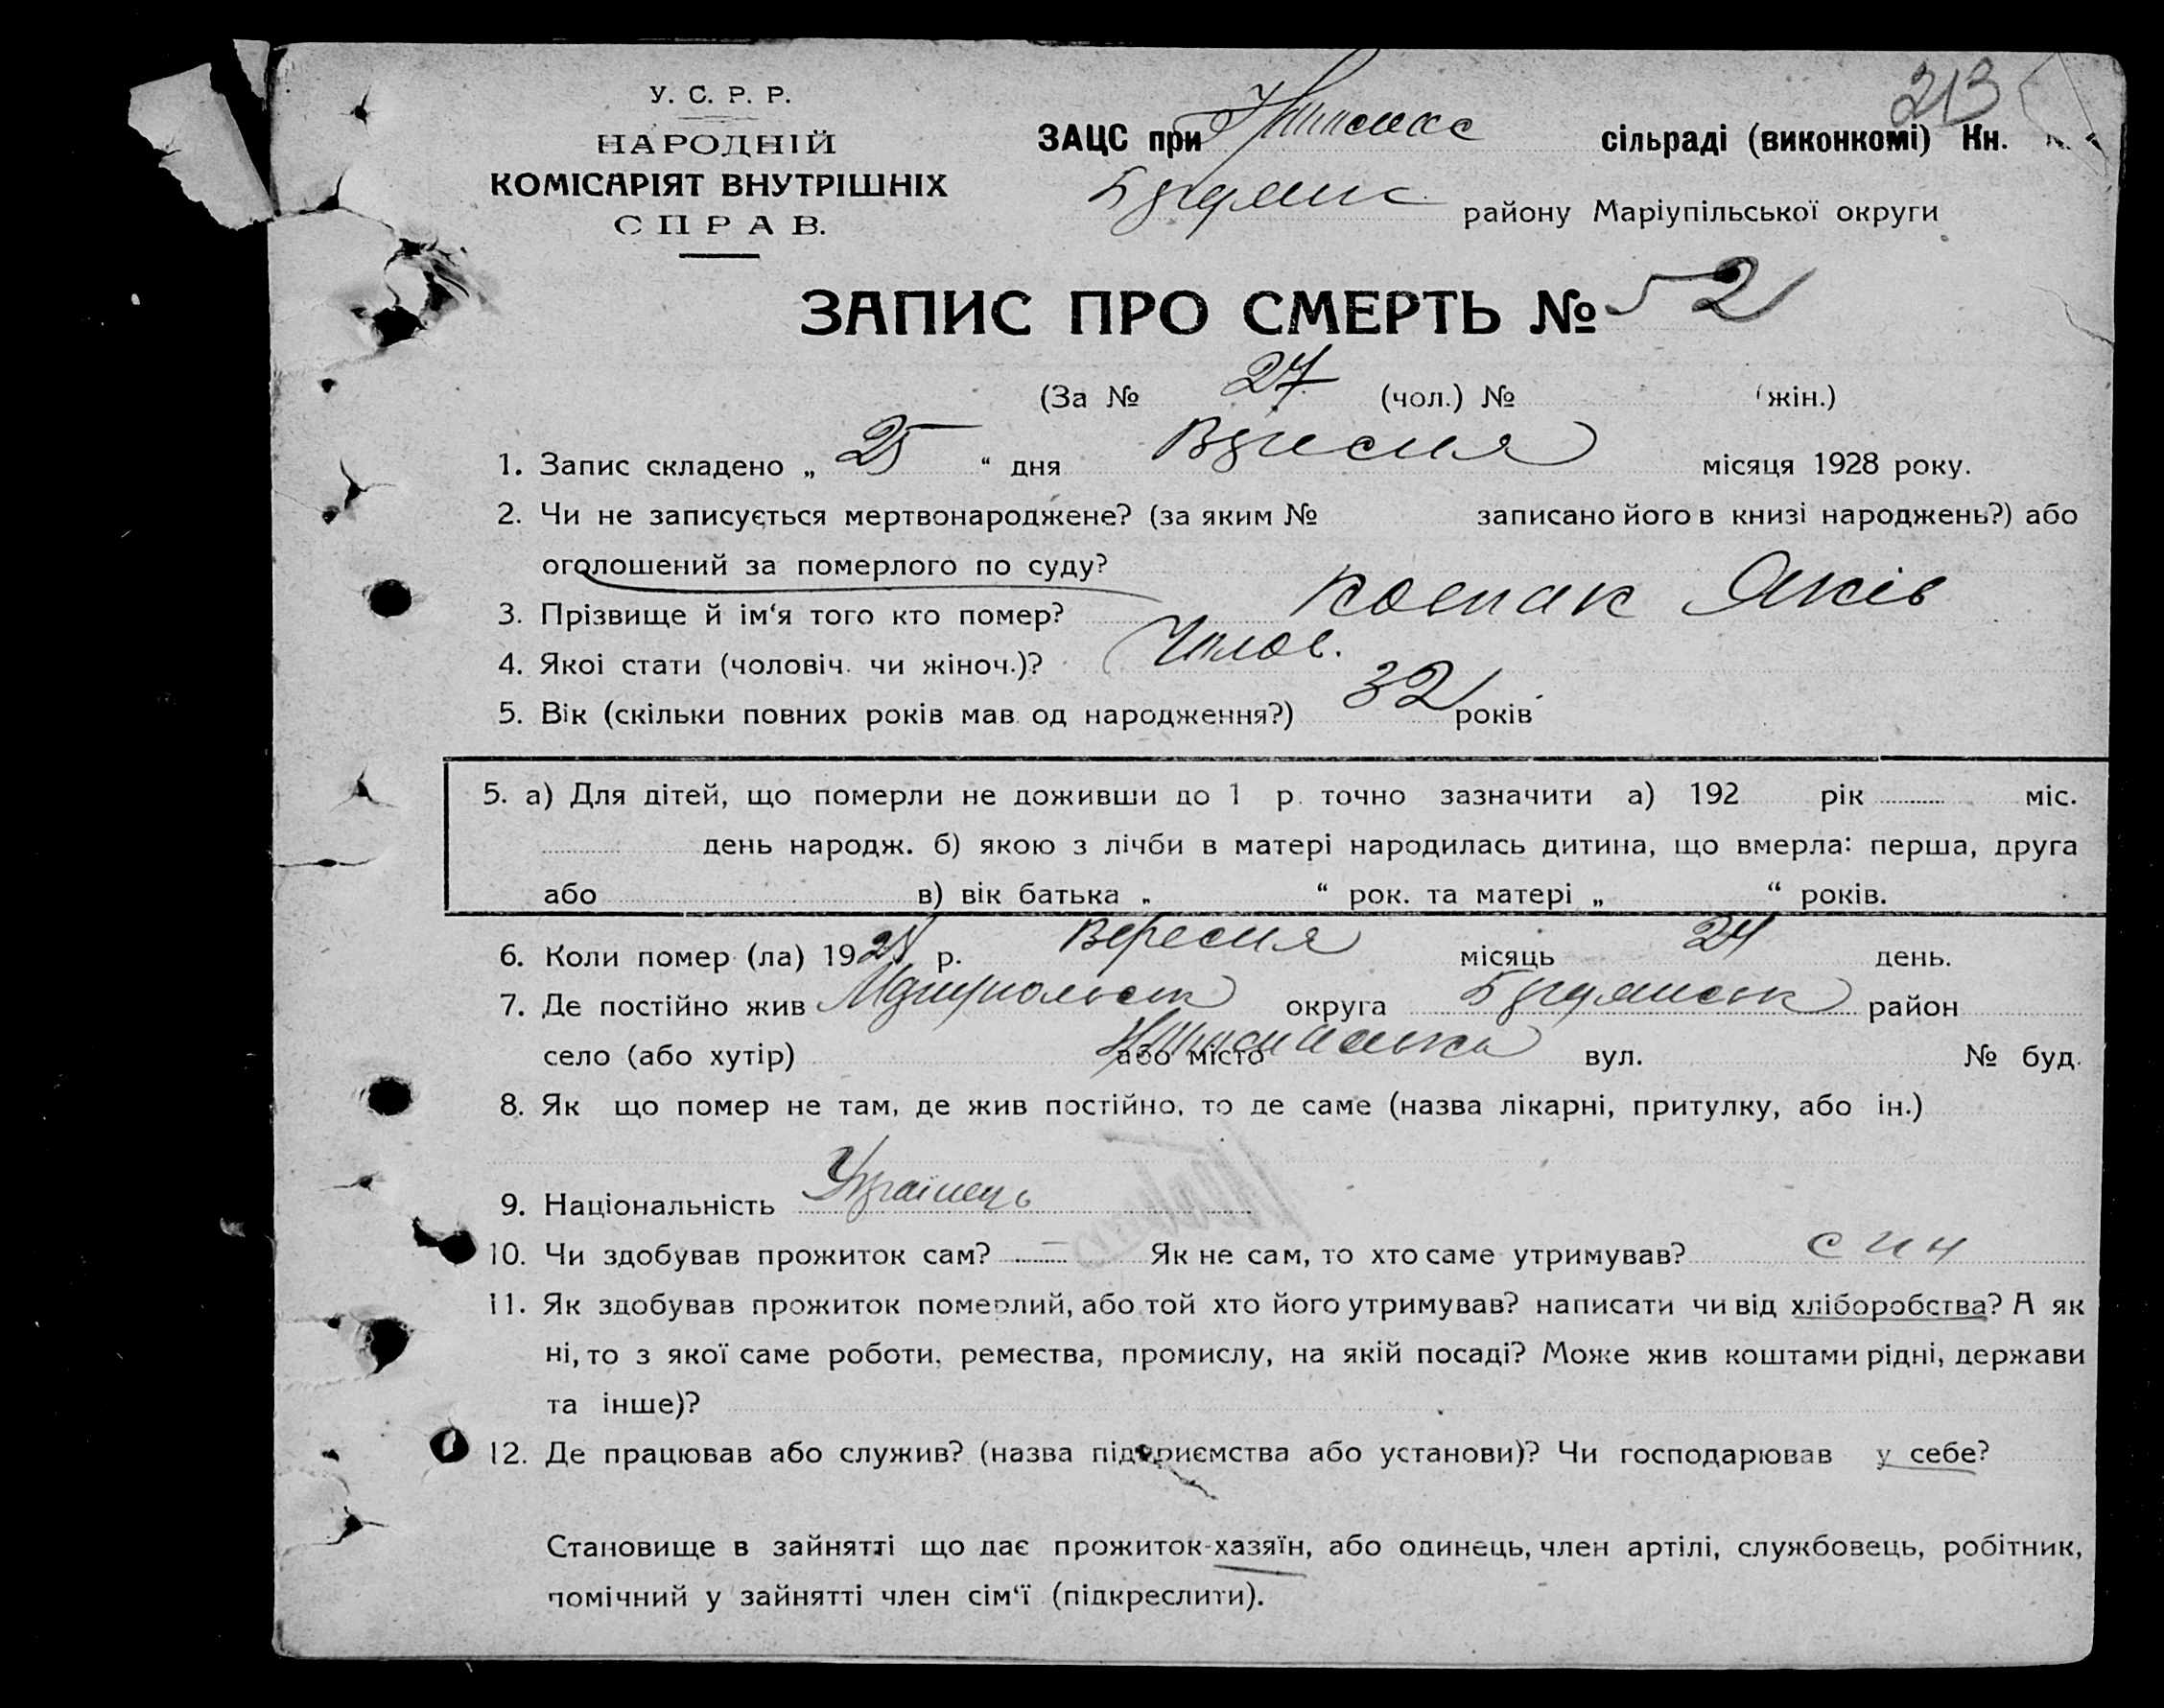 213
У. С. Р. Р.
НАРОДНІЙ
КОМІСАРІЯТ ВНУТРІШНІХ
СПРАВ.
ЗАЦС при сільраді (виконкомі) Кн.
Бердянс району Маріупільської округи
ЗАПИС ПРО СМЕРТЬ № 52
(За № 27 (чол.) № жін.)
1. Запис складено „ 25 “ дня Вересня місяця 1928 року.
2. Чи не записується мертвонароджене? (за яким № записано його в книзі народжень?) або
оголошений за померлого по суду?
3. Прізвище й ім‘я того кто помер? Яків
4. Якоі стати (чоловіч. чи жіноч.)? Чолов.
5. Вік (скільки повних років мав од народження?) 32 років
5. а) Для дітей, що померли не доживши до 1 р. точно зазначити а) 192 рік міс.
день народж. б) якою з лічби в матері народилась дитина, що вмерла: перша, друга
або в) вік батька „ “ рок. та матері „ “ років.
6. Коли помер (ла) 1928 р. Вересня місяць 24 день.
7. Де постійно жив Маріупольськ округа Бердянськ район
село (або хутір) або місто вул. № буд.
8. Як що помер не там, де жив постійно, то де саме (назва лікарні, притулку, або ін.)
9. Національність Українець
10. Чи здобував прожиток сам? — Як не сам, то хто саме утримував? син
11. Як здобував прожиток померлий, або той хто його утримував? написати чи від хліборобства? А як
ні, то з якої саме роботи, ремества, промислу, на якій посаді? Може жив коштами рідні, держави
та інше)?
12. Де працював або служив? (назва підприємства або установи)? Чи господарював у себе?
Становище в зайнятті що дає прожиток-хазяїн, або одинець, член артілі, службовець, робітник,
помічний у зайнятті член сім‘ї (підкреслити).